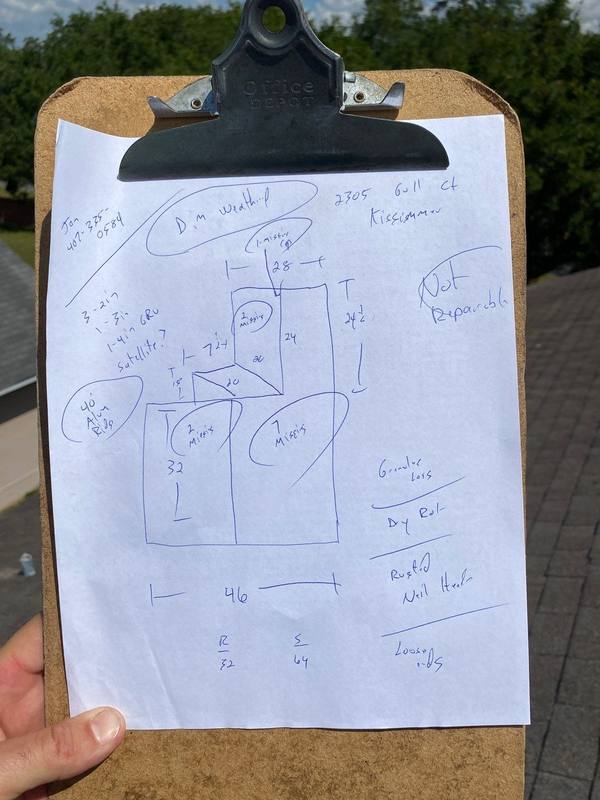 Office
DEPOT
Jon
407-335-
0584
2305 Gull Ct
Kissimmee
1-missing
28
Not
Repairable
3-2in
1-3in
1-4in GRV
Satellite?
2
Missing
24
24 1/2
7 1/2
20
40'
Alum
Ridge
2
Missing
7
Missing
32
Granular
Loss
Dry Rot
Rusted
Nail Heads
Loose
46
R
32
S
64